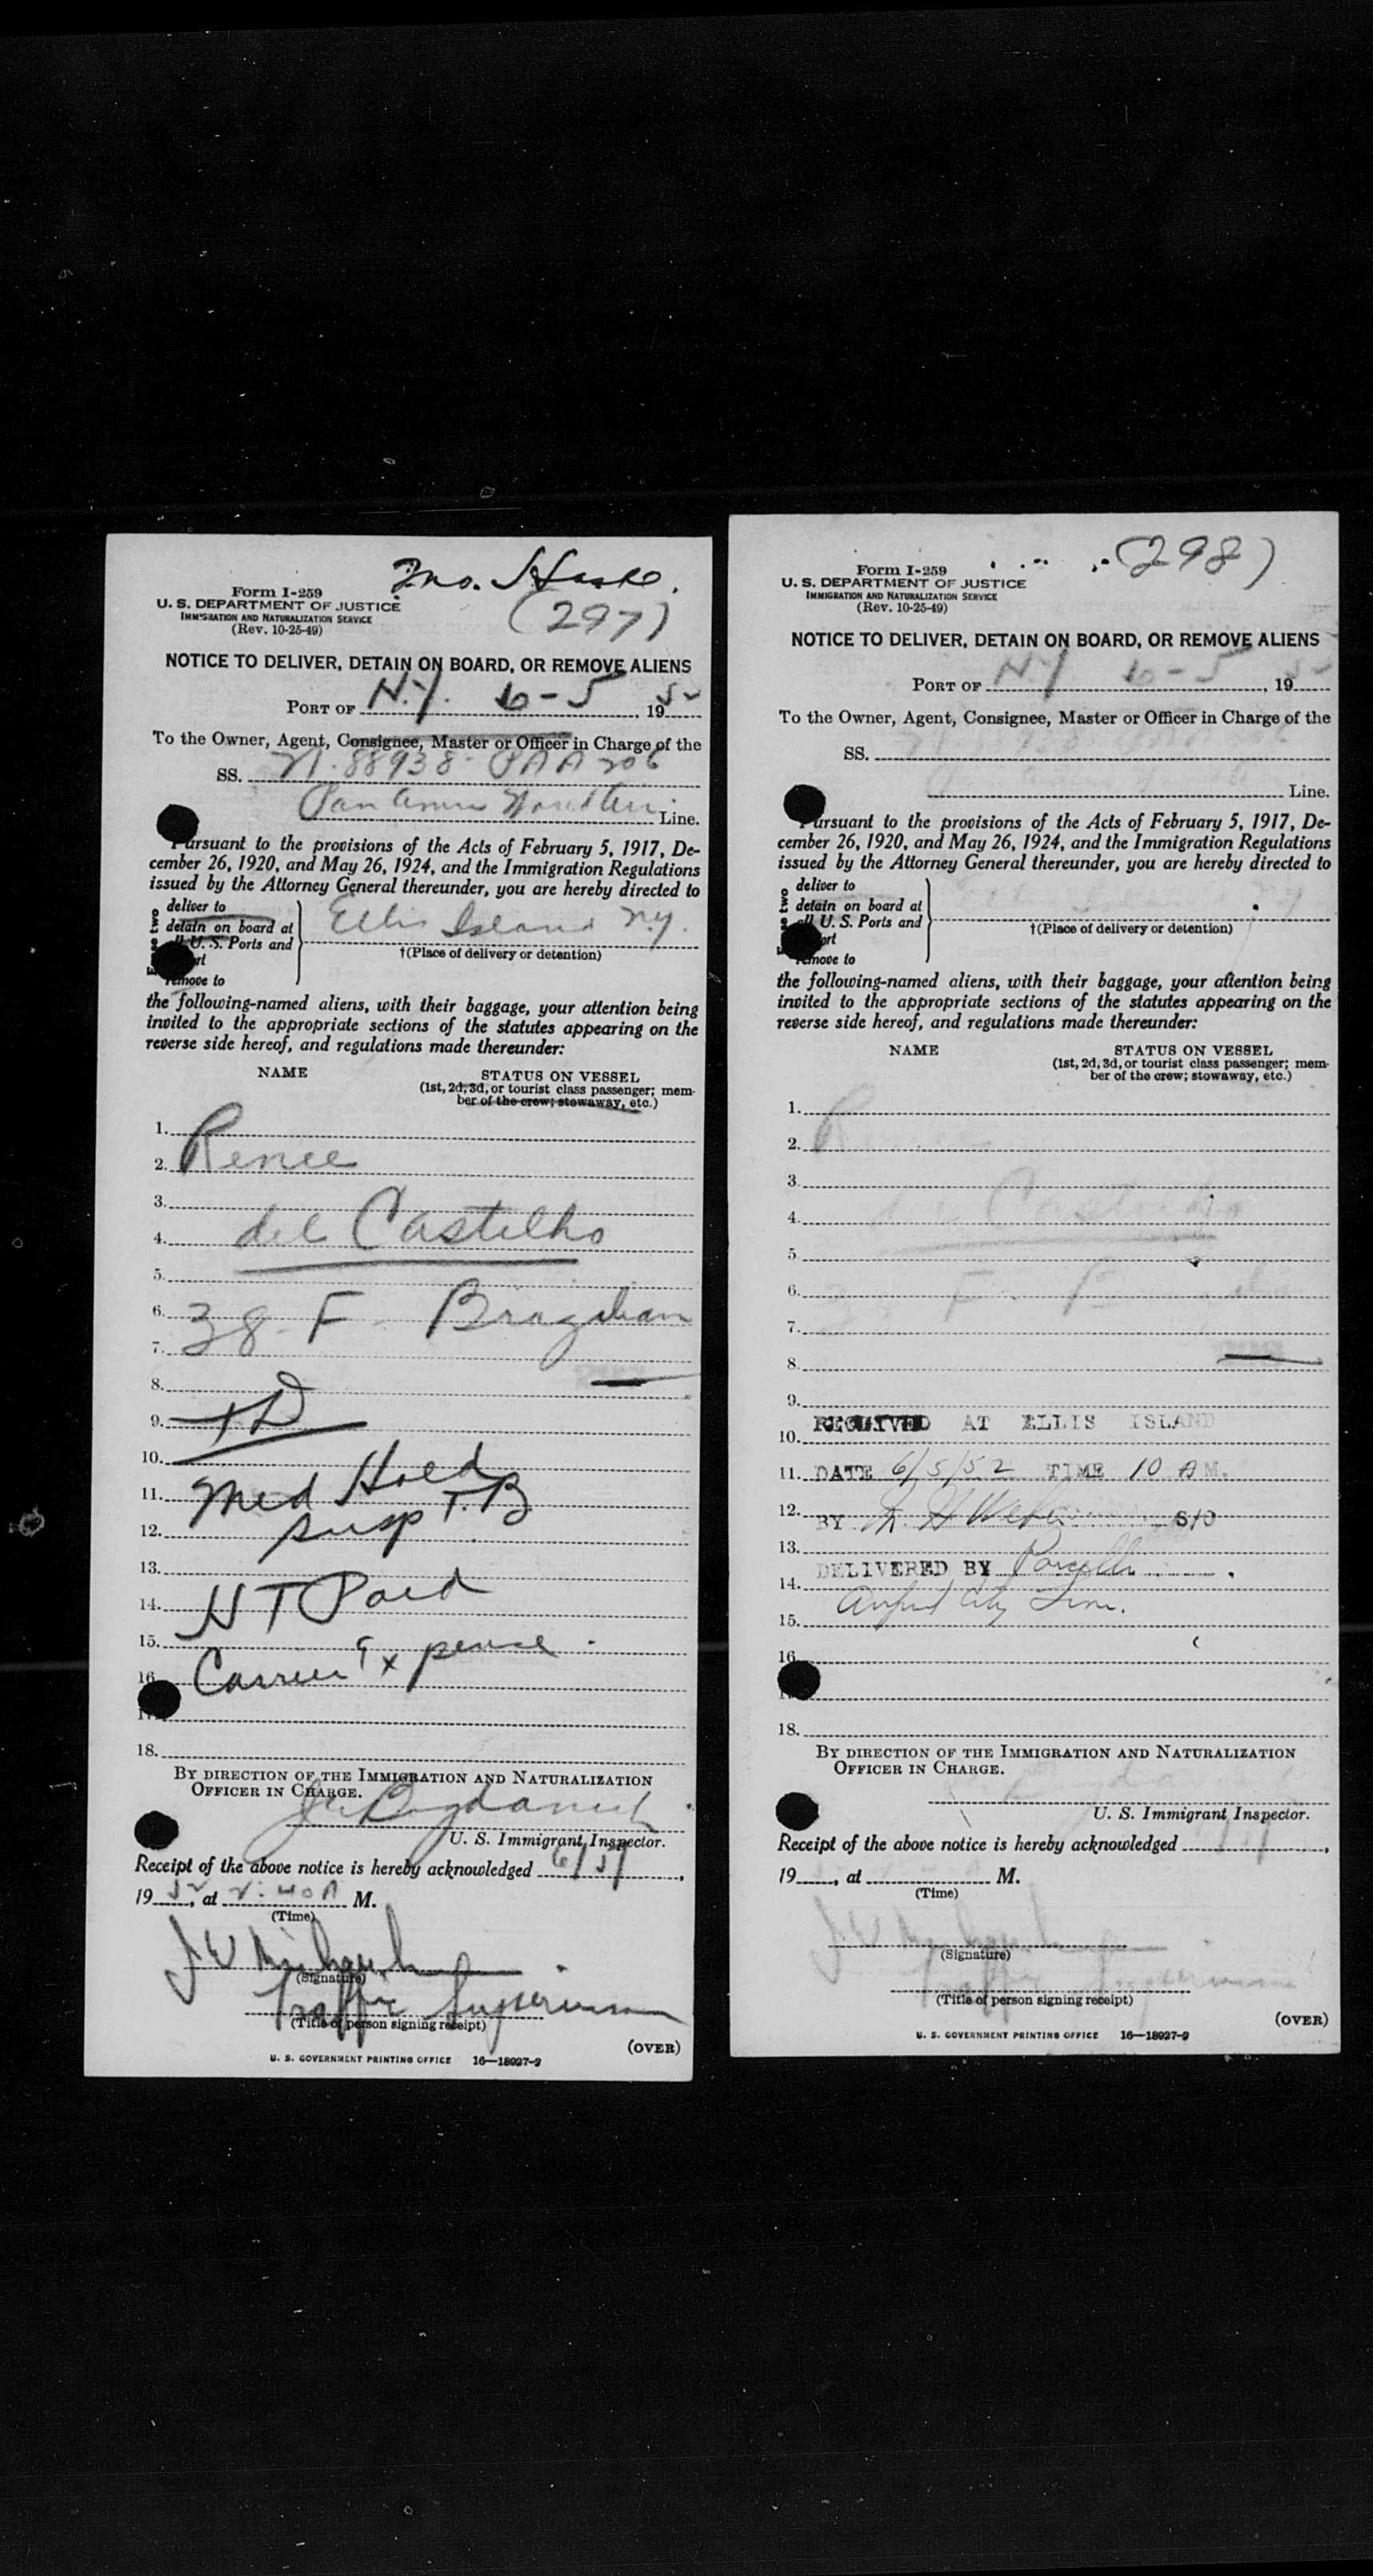 Form I-259
U. S. DEPARTMENT OF JUSTICE
IMMIGRATION AND NATURALIZATION SERVICE
(Rev. 10-25-49)
(297)
NOTICE TO DELIVER, DETAIN ON BOARD, OR REMOVE ALIENS
PORT OF N.Y. 6-5, 1952
To the Owner, Agent, Consignee, Master or Officer in Charge of the
SS. N.88938- PAA 206
Pan Amer World Air. Line.
Pursuant to the provisions of the Acts of February 5, 1917, De-
cember 26, 1920, and May 26, 1924, and the Immigration Regulations
issued by the Attorney General thereunder, you are hereby directed to
deliver to
detain on board at
U. S. Ports and
remove to
Ellis Island N.Y.
†(Place of delivery or detention)
the following-named aliens, with their baggage, your attention being
invited to the appropriate sections of the statutes appearing on the
reverse side hereof, and regulations made thereunder:
NAME STATUS ON VESSEL
(1st, 2d, 3d, or tourist class passenger; mem-
ber of the crew; stowaway, etc.)
1.
2. Renee
3.
4. del Castelho
5.
6. 38 - F - Brazilian
7.
8.
9. TD
10.
11. Med Hold
12. Susp T.B.
13.
14. HT Paid
15.
16. Carrier Expense.
18.
BY DIRECTION OF THE IMMIGRATION AND NATURALIZATION
OFFICER IN CHARGE.
U. S. Immigrant Inspector.
Receipt of the above notice is hereby acknowledged 6/5,
1952, at M.
(Time)
(Signature)
Traffic Supervisor
(Title of person signing receipt)
(OVER)
U. S. GOVERNMENT PRINTING OFFICE 16—18027-2
(298)
Form I-259
U. S. DEPARTMENT OF JUSTICE
IMMIGRATION AND NATURALIZATION SERVICE
(Rev. 10-25-49)
NOTICE TO DELIVER, DETAIN ON BOARD, OR REMOVE ALIENS
PORT OF N.Y 6-5, 1952
To the Owner, Agent, Consignee, Master or Officer in Charge of the
SS.
Line.
Pursuant to the provisions of the Acts of February 5, 1917, De-
cember 26, 1920, and May 26, 1924, and the Immigration Regulations
issued by the Attorney General thereunder, you are hereby directed to
deliver to
detain on board at
all U. S. Ports and
remove to
†(Place of delivery or detention)
the following-named aliens, with their baggage, your attention being
invited to the appropriate sections of the statutes appearing on the
reverse side hereof, and regulations made thereunder:
NAME STATUS ON VESSEL
(1st, 2d, 3d, or tourist class passenger; mem-
ber of the crew; stowaway, etc.)
1.
2.
3.
4.
5.
6.
7.
8.
9.
RECEIVED AT ELLIS ISLAND
10.
11. DATE 6/5/52 TIME 10 A M.
12.
BY S/O
13.
DELIVERED BY
14.
15.
16.
18.
BY DIRECTION OF THE IMMIGRATION AND NATURALIZATION
OFFICER IN CHARGE.
U. S. Immigrant Inspector.
Receipt of the above notice is hereby acknowledged ,
19 , at M.
(Time)
(Signature)
Traffic Supervisor
(Title of person signing receipt)
(OVER)
U. S. GOVERNMENT PRINTING OFFICE 16—18027-2